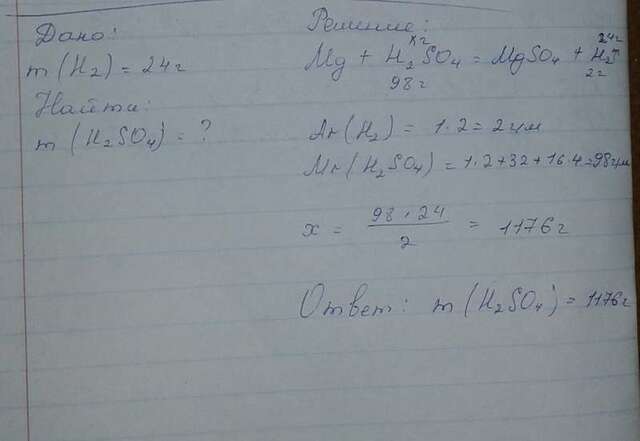 Дано:
m(H₂) = 24г
Найти:
m(H₂SO₄) = ?
Решение:
xг 24г
Mg + H₂SO₄ = MgSO₄ + H₂↑
98г 2г
Ar(H₂) = 1·2 = 2 г/м
Mr(H₂SO₄) = 1·2+32+16·4=98г/м
x = 98·24 / 2 = 1176г
Ответ: m(H₂SO₄) = 1176г